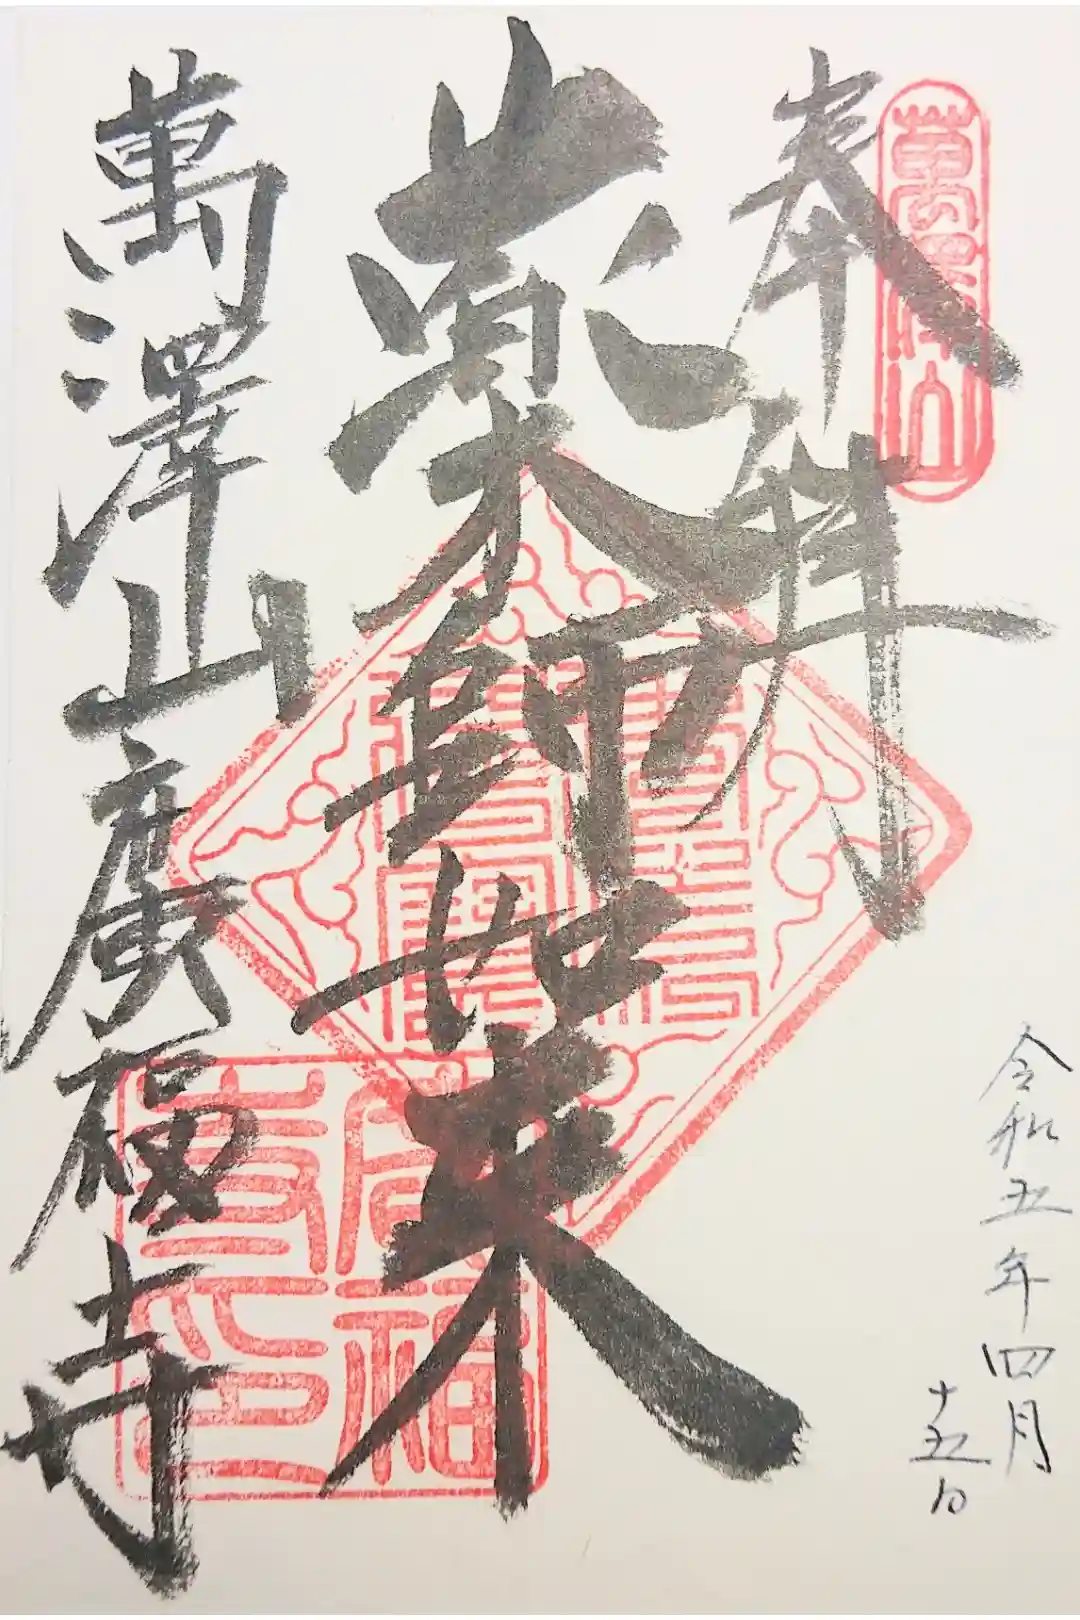 奉拝
萬澤山
令和五年四月
十五日
薬師如来
萬澤山廣福寺
廣福寺印